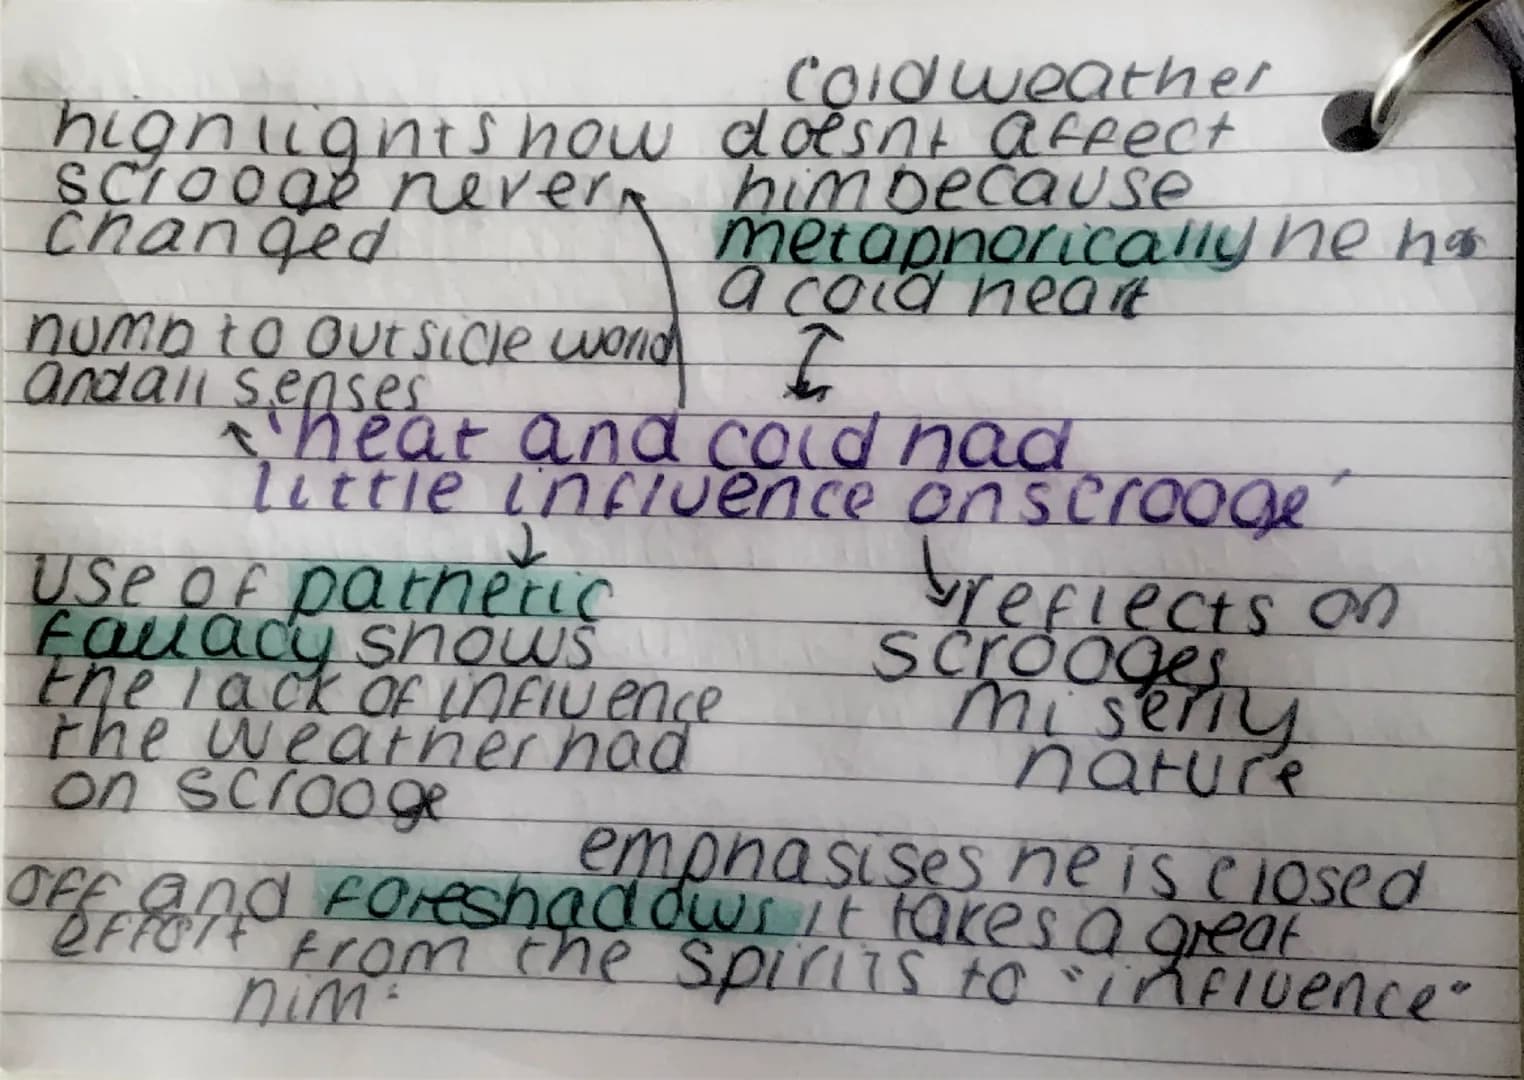 highlights how
scrooge never
changed
cold weather
doesnt affect
him because
metaphorically he has
a cold heart
numb to outside world
and all senses
'heat and cold had
little influence on scrooge'
use of pathetic
fallacy shows
the lack of influence
the weather had
on scrooge
reflects on
scrooges
miserly
nature
emphasises he is closed
off and foreshadows it takes a great
effort from the spirits to "influence"
him.